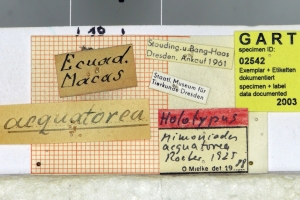 10
Ecuad.
Macas
Stauding. u. Bang-Haas
Dresden, Ankauf 1961
Staatl. Museum für
Tierkunde Dresden
GART
specimen ID:
02542
Exemplar + Etiketten
dokumentiert
specimen + label
data documented
2003
aequatorea
Holotypus
Mimoniades
aequatorea
Roeber, 1925
O Mielke det 19 88